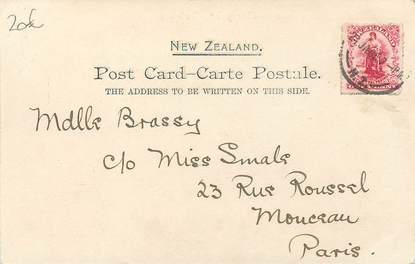 20k
NEW ZEALAND.
Post Card–Carte Postale.
THE ADDRESS TO BE WRITTEN ON THIS SIDE.
Mdlle Brassy
c/o Miss Smale
23 Rue Roussel
Monceau
Paris.